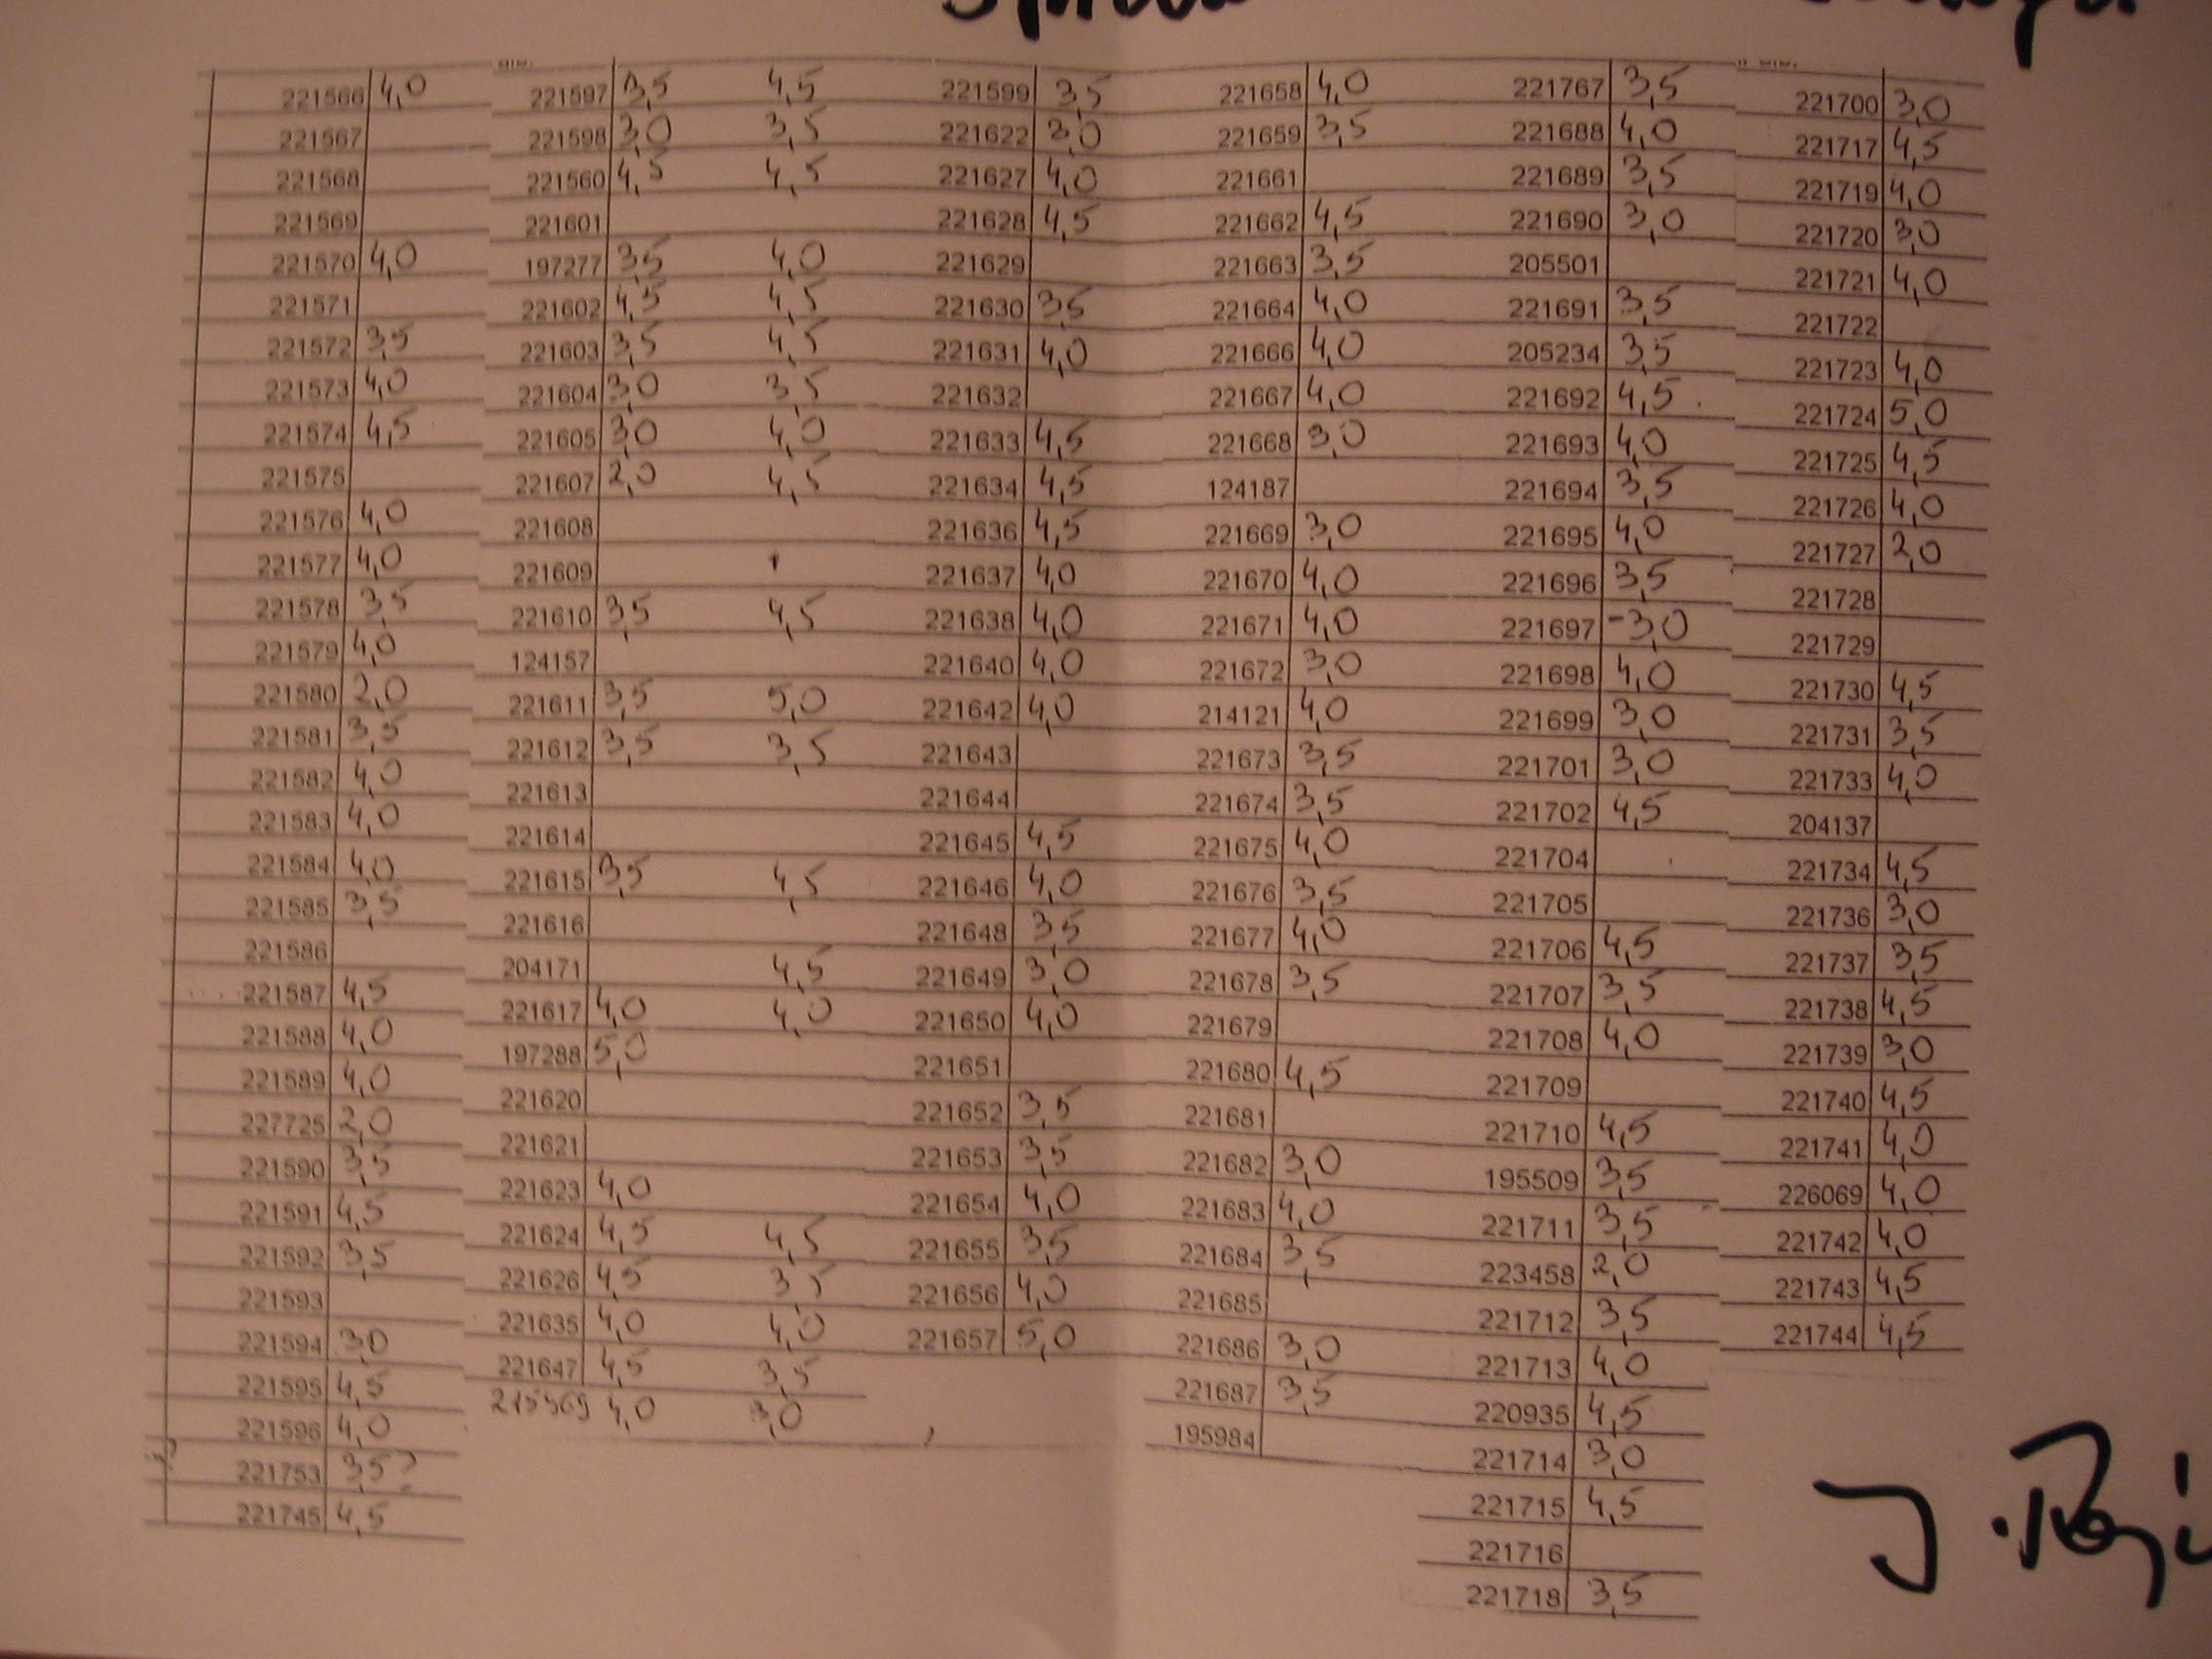 221566 4,0
221567
221568
221569
221570 4,0
221571
221572 3,5
221573 4,0
221574 4,5
221575
221576 4,0
221577 4,0
221578 3,5
221579 4,0
221580 2,0
221581 3,5
221582 4,0
221583 4,0
221584 4,0
221585 3,5
221586
221587 4,5
221588 4,0
221589 4,0
227725 2,0
221590 3,5
221591 4,5
221592 3,5
221593
221594 3,0
221595 4,5
221596 4,0
221753 3,5?
221745 4,5
221597 3,5 4,5
221598 3,0 3,5
221560 4,5 4,5
221601
197277 3,5 4,0
221602 4,5 4,5
221603 3,5 4,5
221604 3,0 3,5
221605 3,0 4,0
221607 2,0 4,5
221608
221609
221610 3,5 4,5
124157
221611 3,5 5,0
221612 3,5 3,5
221613
221614
221615 3,5 4,5
221616
204171 4,5
221617 4,0 4,0
197288 5,0
221620
221621
221623 4,0
221624 4,5 4,5
221626 4,5 3,5
221635 4,0 4,0
221647 4,5 3,5
4,0 3,0
221599 3,5
221622 3,0
221627 4,0
221628 4,5
221629
221630 3,5
221631 4,0
221632
221633 4,5
221634 4,5
221636 4,5
221637 4,0
221638 4,0
221640 4,0
221642 4,0
221643
221644
221645 4,5
221646 4,0
221648 3,5
221649 3,0
221650 4,0
221651
221652 3,5
221653 3,5
221654 4,0
221655 3,5
221656 4,0
221657 5,0
221658 4,0
221659 3,5
221661
221662 4,5
221663 3,5
221664 4,0
221666 4,0
221667 4,0
221668 3,0
124187
221669 3,0
221670 4,0
221671 4,0
221672 3,0
214121 4,0
221673 3,5
221674 3,5
221675 4,0
221676 3,5
221677 4,0
221678 3,5
221679
221680 4,5
221681
221682 3,0
221683 4,0
221684 3,5
221685
221686 3,0
221687 3,5
195984
221767 3,5
221688 4,0
221689 3,5
221690 3,0
205501
221691 3,5
205234 3,5
221692 4,5
221693 4,0
221694 3,5
221695 4,0
221696 3,5
221697 -3,0
221698 4,0
221699 3,0
221701 3,0
221702 4,5
221704
221705
221706 4,5
221707 3,5
221708 4,0
221709
221710 4,5
195509 3,5
221711 3,5
223458 2,0
221712 3,5
221713 4,0
220935 4,5
221714 3,0
221715 4,5
221716
221718 3,5
221700 3,0
221717 4,5
221719 4,0
221720 3,0
221721 4,0
221722
221723 4,0
221724 5,0
221725 4,5
221726 4,0
221727 2,0
221728
221729
221730 4,5
221731 3,5
221733 4,0
204137
221734 4,5
221736 3,0
221737 3,5
221738 4,5
221739 3,0
221740 4,5
221741 4,0
226069 4,0
221742 4,0
221743 4,5
221744 4,5